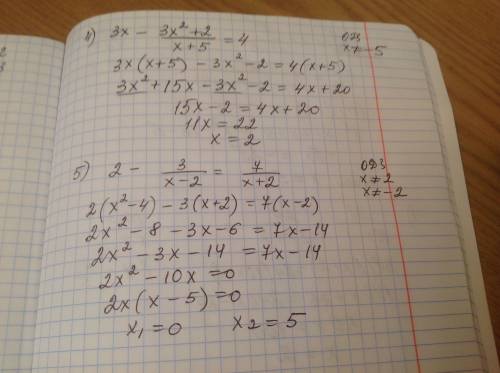 4) 3x - (3x² + 2)/(x + 5) = 4   ОДЗ x ≠ -5
3x(x+5) - 3x² - 2 = 4(x+5)
3x² + 15x - 3x² - 2 = 4x + 20
15x - 2 = 4x + 20
11x = 22
x = 2
5) 2 - 3/(x-2) = 7/(x+2)   ОДЗ x ≠ 2 x ≠ -2
2(x² - 4) - 3(x+2) = 7(x-2)
2x² - 8 - 3x - 6 = 7x - 14
2x² - 3x - 14 = 7x - 14
2x² - 10x = 0
2x(x - 5) = 0
x₁ = 0   x₂ = 5